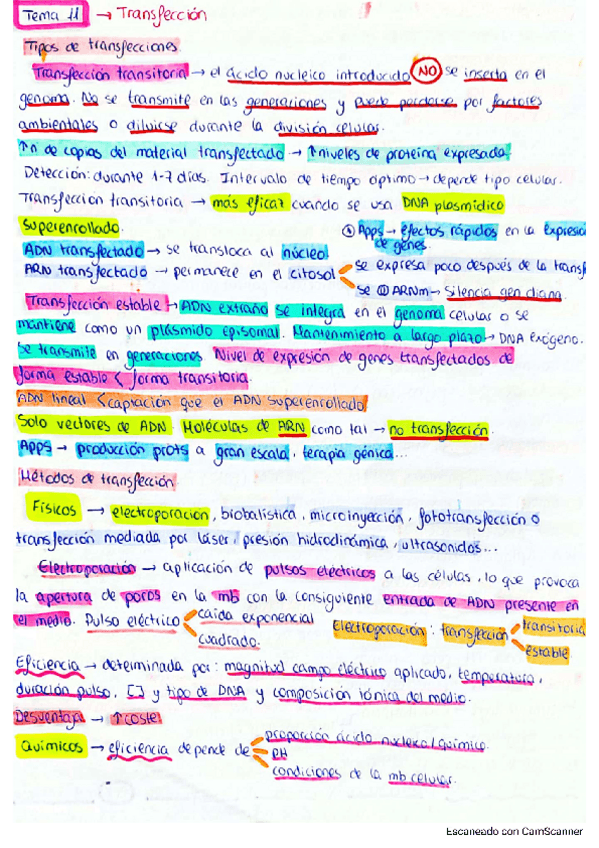 Tema 11 → Transfección
Tipos de transfecciones
Transfección transitoria → el ácido nucleico introducido NO se inserta en el
genoma. No se transmite en las generaciones y puede perderse por factores
ambientales o diluirse durante la división celular.
↑n de copias del material transfectado → ↑niveles de proteína expresada
Detección: durante 1-7 días. Intervalo de tiempo óptimo → depende tipo celular.
Transfección transitoria → más eficaz cuando se usa DNA plasmídico
superenrollado.
Apps → efectos rápidos en la expresió
de genes.
ADN transfectado → se transloca al núcleo
ARN transfectado → permanece en el citosol
se expresa poco después de la transf
se ARNm → silencia gen diana.
Transfección estable → ADN extraño se integra en el genoma celular o se
mantiene como un plásmido episomal. Mantenimiento a largo plazo → DNA exógeno.
Se transmite en generaciones Nivel de expresión de genes transfectados de
forma estable < forma transitoria.
ADN lineal < captación que el ADN superenrollado
Solo vectores de ADN. Moléculas de ARN como tal → no transfección.
Apps → producción prots a gran escala, terapia génica...
Métodos de transfección.
Físicos → electroporación, biobalística, microinyección, fototransfección o
transfección mediada por láser, presión hidrodinámica, ultrasonidos...
Electroporación → aplicación de pulsos eléctricos a las células, lo que provoca
la apertura de poros en la mb con la consiguiente entrada de ADN presente en
el medio. Pulso eléctrico
caída exponencial
cuadrado.
Electroporación: transfección
transitoria
estable
Eficiencia → determinada por: magnitud campo eléctrico aplicado, temperatura,
duración pulso, [] y tipo de DNA y composición iónica del medio.
Desventaja → ↑coste
Químicos → eficiencia depende de
proporción ácido nucleico/químico.
pH
condiciones de la mb celular.
Escaneado con CamScanner